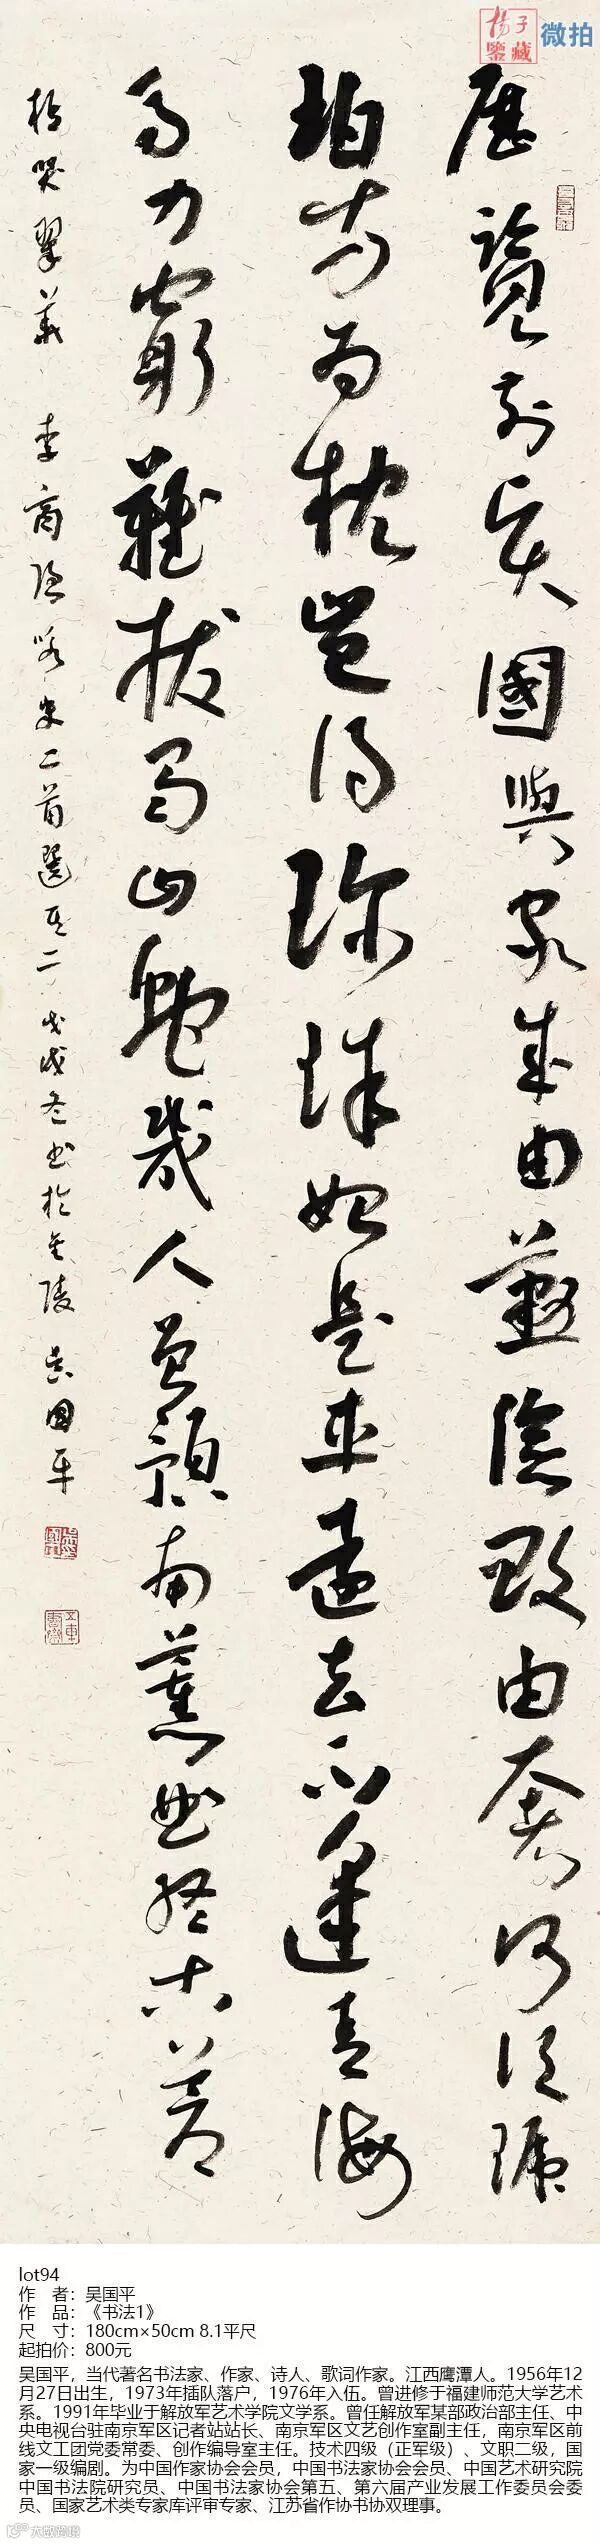 揚子
鑒藏
微拍
歷覽前賢國與家成由勤儉敗由奢何須琥
珀方為枕豈得珍珠始是車遠去不逢青海
馬力窮難拔蜀山蛇幾人曾預南薰曲終古蒼
梧哭翠華 李商隱詠史二首選其二 戊戌冬書於金陵 吳國平
lot94
作 者：吴国平
作 品：《书法1》
尺 寸：180cm×50cm 8.1平尺
起拍价：800元
吴国平，当代著名书法家、作家、诗人、歌词作家。江西鹰潭人。1956年12
月27日出生，1973年插队落户，1976年入伍。曾进修于福建师范大学艺术
系。1991年毕业于解放军艺术学院文学系。曾任解放军某部政治部主任、中
央电视台驻南京军区记者站站长、南京军区文艺创作室副主任，南京军区前
线文工团党委常委、创作编导室主任。技术四级（正军级）、文职二级，国
家一级编剧。为中国作家协会会员，中国书法家协会会员、中国艺术研究院
中国书法院研究员、中国书法家协会第五、第六届产业发展工作委员会委
员、国家艺术类专家库评审专家、江苏省作协书协双理事。